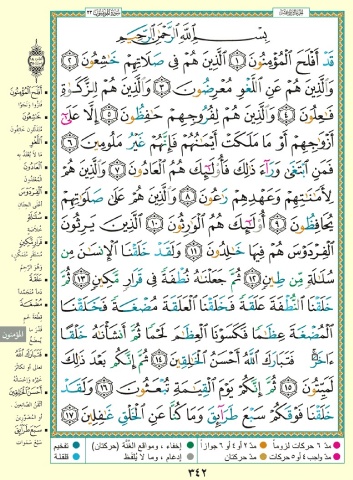 سورة المؤمنون ٢٣
بسم الله الرحمن الرحيم
قَدْ أَفْلَحَ الْمُؤْمِنُونَ ١ الَّذِينَ هُمْ فِي صَلَاتِهِمْ خَاشِعُونَ ٢
وَالَّذِينَ هُمْ عَنِ اللَّغْوِ مُعْرِضُونَ ٣ وَالَّذِينَ هُمْ لِلزَّكَاةِ
فَاعِلُونَ ٤ وَالَّذِينَ هُمْ لِفُرُوجِهِمْ حَافِظُونَ ٥ إِلَّا عَلَىٰ
أَزْوَاجِهِمْ أَوْ مَا مَلَكَتْ أَيْمَانُهُمْ فَإِنَّهُمْ غَيْرُ مَلُومِينَ ٦
فَمَنِ ابْتَغَىٰ وَرَاءَ ذَٰلِكَ فَأُولَٰئِكَ هُمُ الْعَادُونَ ٧ وَالَّذِينَ هُمْ
لِأَمَانَاتِهِمْ وَعَهْدِهِمْ رَاعُونَ ٨ وَالَّذِينَ هُمْ عَلَىٰ صَلَوَاتِهِمْ
يُحَافِظُونَ ٩ أُولَٰئِكَ هُمُ الْوَارِثُونَ ١٠ الَّذِينَ يَرِثُونَ
الْفِرْدَوْسَ هُمْ فِيهَا خَالِدُونَ ١١ وَلَقَدْ خَلَقْنَا الْإِنسَانَ مِن
سُلَالَةٍ مِّن طِينٍ ١٢ ثُمَّ جَعَلْنَاهُ نُطْفَةً فِي قَرَارٍ مَّكِينٍ ١٣ ثُمَّ
خَلَقْنَا النُّطْفَةَ عَلَقَةً فَخَلَقْنَا الْعَلَقَةَ مُضْغَةً فَخَلَقْنَا
الْمُضْغَةَ عِظَامًا فَكَسَوْنَا الْعِظَامَ لَحْمًا ثُمَّ أَنشَأْنَاهُ خَلْقًا
آخَرَ فَتَبَارَكَ اللَّهُ أَحْسَنُ الْخَالِقِينَ ١٤ ثُمَّ إِنَّكُم بَعْدَ ذَٰلِكَ
لَمَيِّتُونَ ١٥ ثُمَّ إِنَّكُمْ يَوْمَ الْقِيَامَةِ تُبْعَثُونَ ١٦ وَلَقَدْ
خَلَقْنَا فَوْقَكُمْ سَبْعَ طَرَائِقَ وَمَا كُنَّا عَنِ الْخَلْقِ غَافِلِينَ ١٧
أفلح المؤمنون
خاشعون
اللغو
العادون
الفردوس
سلالة
قرار مكين
علقة
مضغة
المؤمنون
فتبارك الله
أحسن الخالقين
سبع طرائق
سبع سموات
مد ٦ حركات لزوماً مد ٢ أو ٤ أو ٦ جوازاً إخفاء، ومواقع الغُنَّة (حركتان) تفخيم
مد واجب ٤ أو ٥ حركات مد حركتان إدغام، وما لا يُلفظ قلقلة
٣٤٢